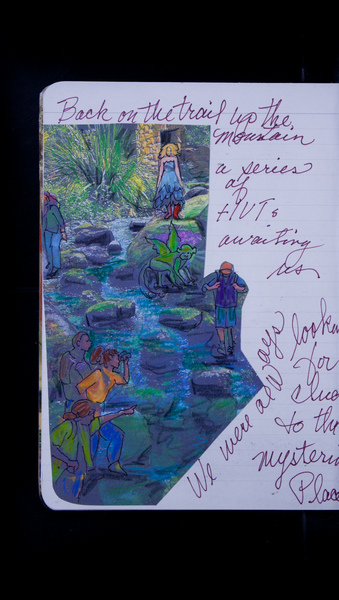 Back on the trail up the
mountain
a series
of
awaiting
us
We were always
looking
for
clues
to the
Place